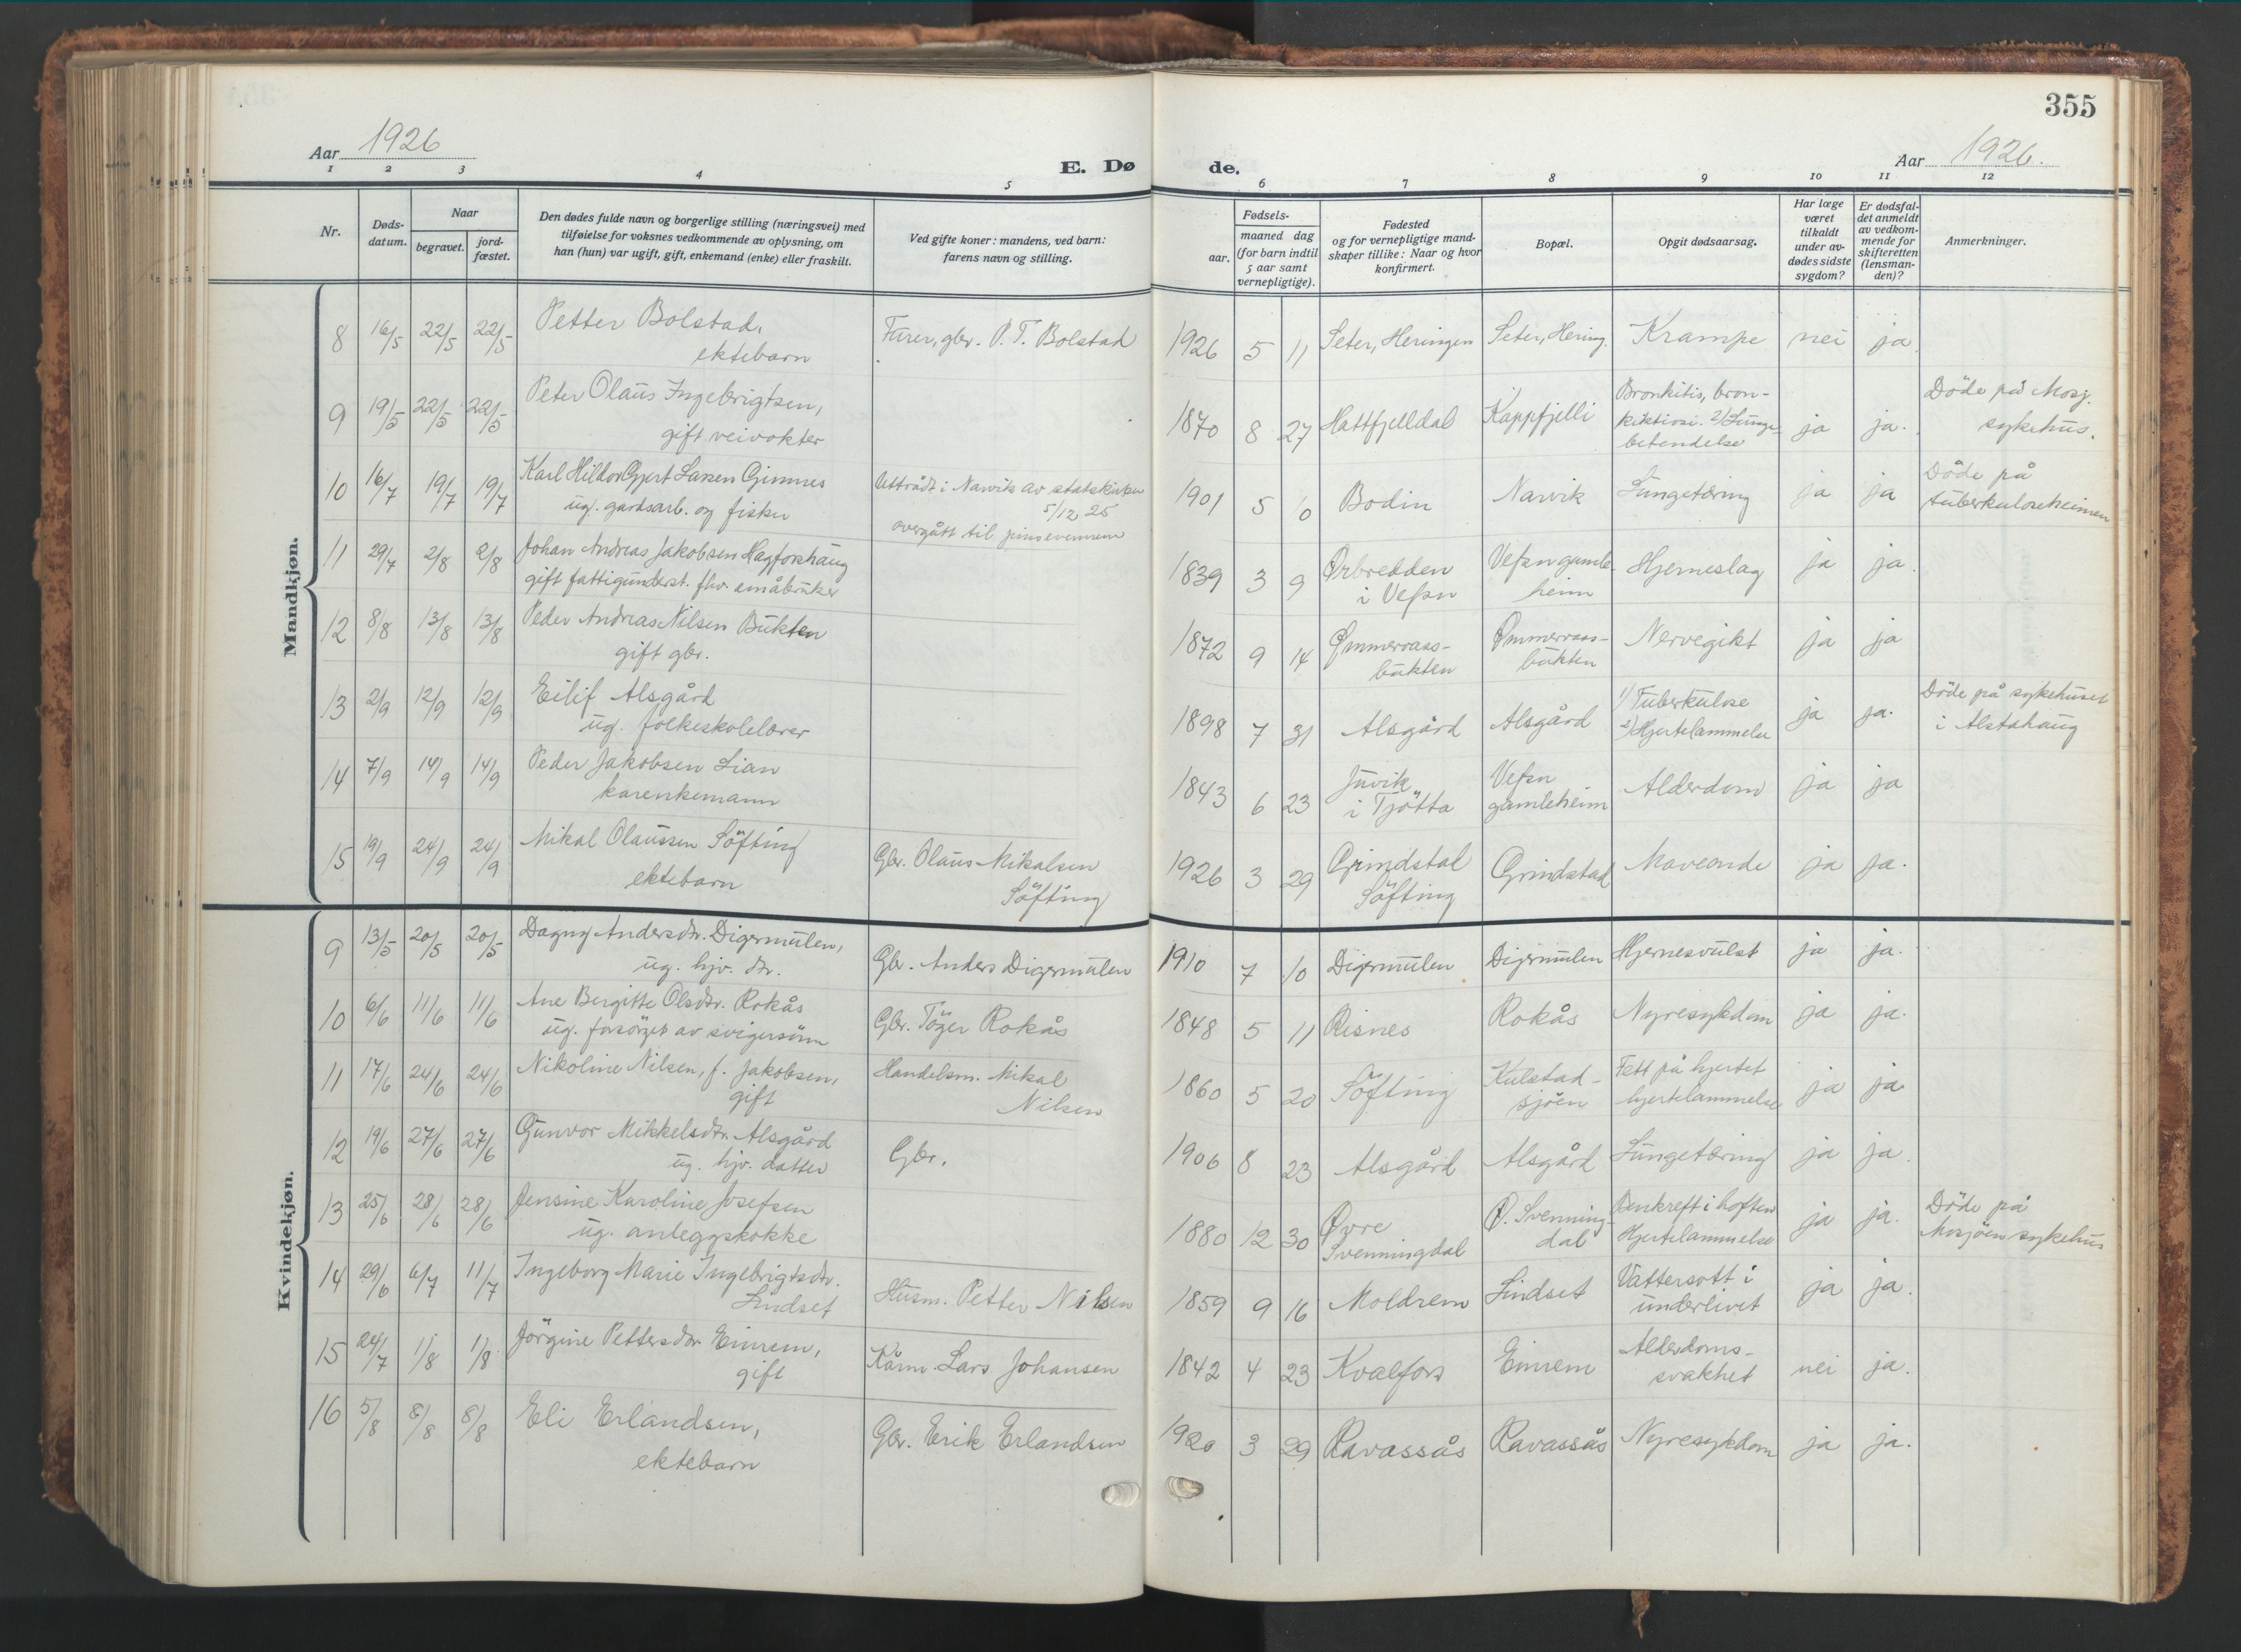 355
Aar 1926
E. Dø
de.
Aar 1926.
1 2 3 4 5 6 7 8 9 10 11 12
Nr.
Døds-
datum.
Naar
begravet.
jord-
fæstet.
Den dødes fulde navn og borgerlige stilling (næringsvei) med
tilføielse for voksnes vedkommende av oplysning, om
han (hun) var ugift, gift, enkemand (enke) eller fraskilt.
Ved gifte koner: mandens, ved barn:
farens navn og stilling.
Fødsels-
aar.
maaned dag
(for barn indtil
5 aar samt
vernepligtige).
Fødested
og for vernepligtige mand-
skaper tillike: Naar og hvor
konfirmert.
Bopæl.
Opgit dødsaarsag.
Har læge
været
tilkaldt
under av-
dødes sidste
sygdom?
Er dødsfal-
det anmeldt
av vedkom-
mende for
skifteretten
(lensman-
den)?
Anmerkninger.
Mandkjøn.
8 16/5 22/5 22/5 Petter Bolstad, Furer, gbr. P. T. Bolstad 1926 5 11 Seter, Heringen Seter, Hering. Krampe nei ja
ektebarn
9 19/5 22/5 22/5 Peter Olaus Ingebrigtsen, 1870 8 27 Hattfjelldal Kappfjelli Bronkitis, bron- ja ja. Döde på Mosj.
gift veivokter 2) Lunge- sykehus.
betendelse
10 16/7 19/7 19/7 Karl Hildor Gjert Larsen Gimnes Uttrådt i Narvik av statskirken 1901 5 10 Bodin Narvik Lungetæring ja ja Döde på
ug. gardsarb. og fisker 5/12 25 tuberkuloseheimen
overgått til pinsevennene
11 29/7 2/8 2/8 Johan Andreas Jakobsen Hagforshaug 1839 3 9 Ørbredden Vefsn gamle- Hjerneslag ja ja
gift fattigunderst. fhv. småbruker i Vefsn heim
12 8/8 13/8 13/8 Peder Andreas Nilsen Bukten 1872 9 14 Ømmervass- Ømmervass- Nervegikt ja ja
gift gbr. bukten bukten
13 2/9 12/9 12/9 Eilif Alsgård 1898 7 31 Alsgård Alsgård 1) Tuberkulose ja ja. Döde på sykehuset
ug. folkeskolelærer 2) Hjertelammelse i Alstahaug
14 7/9 14/9 14/9 Peder Jakobsen Lian 1843 6 23 Juvik Vefsn Alderdom ja ja
karenkemann i Tjötta gamleheim
15 19/9 24/9 24/9 Mikal Olaussen Söfting Gbr. Olaus Mikalsen 1926 3 29 Grindstad Grindstad Maveonde ja ja.
ektebarn Söfting Söfting
Kvindekjøn.
9 13/5 20/5 20/5 Dagny Andersdtr. Digermulen, Gbr. Anders Digermulen 1910 7 10 Digermulen Digermulen Hjernesvulst ja ja.
ug. hjv. dtr.
10 6/6 11/6 11/6 Ane Bergitte Olsdtr. Rokås Gbr. Töger Rokås 1848 5 11 Risnes Rokås Nyresykdom ja ja.
ug. forsörget av svigersönn
11 17/6 24/6 24/6 Nikoline Nilsen, f. Jakobsen, Handelsm. Mikal 1860 5 20 Söfting Kulstad- Fett på hjertet ja ja
gift Nilsen sjöen hjertelammelse
12 19/6 27/6 27/6 Gunvor Mikkelsdtr. Alsgård Gbr. 1906 8 23 Alsgård Alsgård Lungetæring ja ja.
ug. hjv. datter
13 25/6 28/6 28/6 Jensine Karoline Josefsen 1880 12 30 Øvre Ø. Svenning- Benkreft i hoften ja ja. Döde på
ug. anleggskokke Svenningdal dal Hjertelammelse Mosjöen sykehus
14 29/6 6/7 11/7 Ingeborg Marie Ingebrigtsdtr. Husm. Petter Nilsen 1859 9 16 Moldrem Lindset Vattersott i ja ja.
Lindset underlivet
15 24/7 1/8 1/8 Jörgine Pettersdtr. Einrem, Kårm. Lars Johansen 1842 4 23 Kvalfors Einrem Alderdoms- nei ja.
gift svakhet
16 5/8 8/8 8/8 Eli Erlandsen, Gbr. Erik Erlandsen 1920 3 29 Ravassås Ravassås Nyresykdom ja ja.
ektebarn